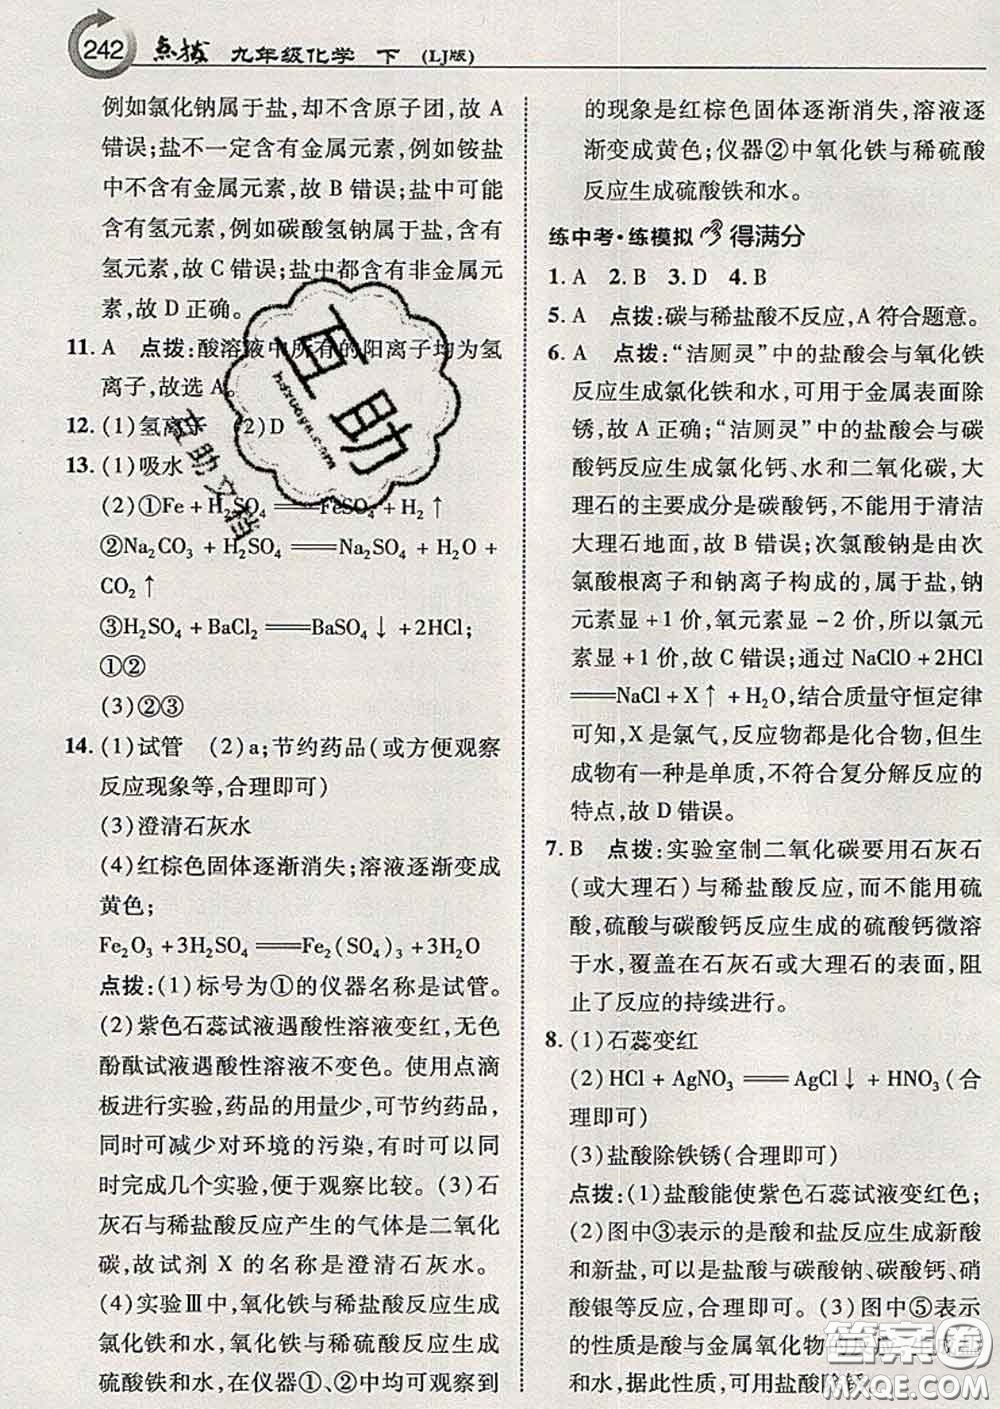 242 点拨 九年级化学 下 (LJ版)
例如氯化钠属于盐,却不含原子团,故 A
错误;盐不一定含有金属元素,例如铵盐
中不含有金属元素,故 B 错误;盐中可能
含有氢元素,例如碳酸氢钠属于盐,含有
氢元素,故 C 错误;盐中都含有非金属元
素,故 D 正确。
11. A 点拨:酸溶液中所有的阳离子均为氢
离子,故选 A。
12. (1)氢离子 (2)D
13. (1)吸水
(2)①Fe + H₂SO₄ ══ FeSO₄ + H₂↑
②Na₂CO₃ + H₂SO₄ ══ Na₂SO₄ + H₂O +
CO₂↑
③H₂SO₄ + BaCl₂ ══ BaSO₄↓ + 2HCl;
①②
(3)②③
14. (1)试管 (2)a;节约药品(或方便观察
反应现象等,合理即可)
(3)澄清石灰水
(4)红棕色固体逐渐消失;溶液逐渐变成
黄色;
Fe₂O₃ + 3H₂SO₄ ══ Fe₂(SO₄)₃ + 3H₂O
点拨:(1)标号为①的仪器名称是试管。
(2)紫色石蕊试液遇酸性溶液变红,无色
酚酞试液遇酸性溶液不变色。使用点滴
板进行实验,药品的用量少,可节约药品,
同时可减少对环境的污染,并且可以同
时完成几个实验,便于观察比较。(3)石
灰石与稀盐酸反应产生的气体是二氧化
碳,故试剂 X 的名称是澄清石灰水。
(4)实验Ⅲ中,氧化铁与稀盐酸反应生成
氯化铁和水,氧化铁与稀硫酸反应生成
硫酸铁和水,在仪器①、②中可观察到
的现象是红棕色固体逐渐消失,溶液逐
渐变成黄色;仪器②中氧化铁与稀硫酸
反应生成硫酸铁和水。
练中考·练模拟 得满分
1. A 2. B 3. D 4. B
5. A 点拨:碳与稀盐酸不反应,A 符合题意。
6. A 点拨:“洁厕灵”中的盐酸会与氧化铁
反应生成氯化铁和水,可用于金属表面除
锈,故 A 正确;“洁厕灵”中的盐酸会与碳
酸钙反应生成氯化钙、水和二氧化碳,大
理石的主要成分是碳酸钙,不能用于清洁
大理石地面,故 B 错误;次氯酸钠是由次
氯酸根离子和钠离子构成的,属于盐,钠
元素显 +1 价,氧元素显 -2 价,所以氯元
素显 +1 价,故 C 错误;通过 NaClO + 2HCl
══ NaCl + X↑ + H₂O,结合质量守恒定律
可知,X 是氯气,反应物都是化合物,但生
成物有一种是单质,不符合复分解反应的
特点,故 D 错误。
7. B 点拨:实验室制二氧化碳要用石灰石
(或大理石)与稀盐酸反应,而不能用硫
酸,硫酸与碳酸钙反应生成的硫酸钙微溶
于水,覆盖在石灰石或大理石的表面,阻
止了反应的持续进行。
8. (1)石蕊变红
(2)HCl + AgNO₃ ══ AgCl↓ + HNO₃(合
理即可)
(3)盐酸除铁锈(合理即可)
点拨:(1)盐酸能使紫色石蕊试液变红色;
(2)图中③表示的是酸和盐反应生成新酸
和新盐,可以是盐酸与碳酸钠、碳酸钙、硝
酸银等反应,合理即可。(3)图中⑤表示
的性质是酸与金属氧化物
和水,据此性质,可用盐酸除
互助
互助文档
答案圈
MXQE.COM